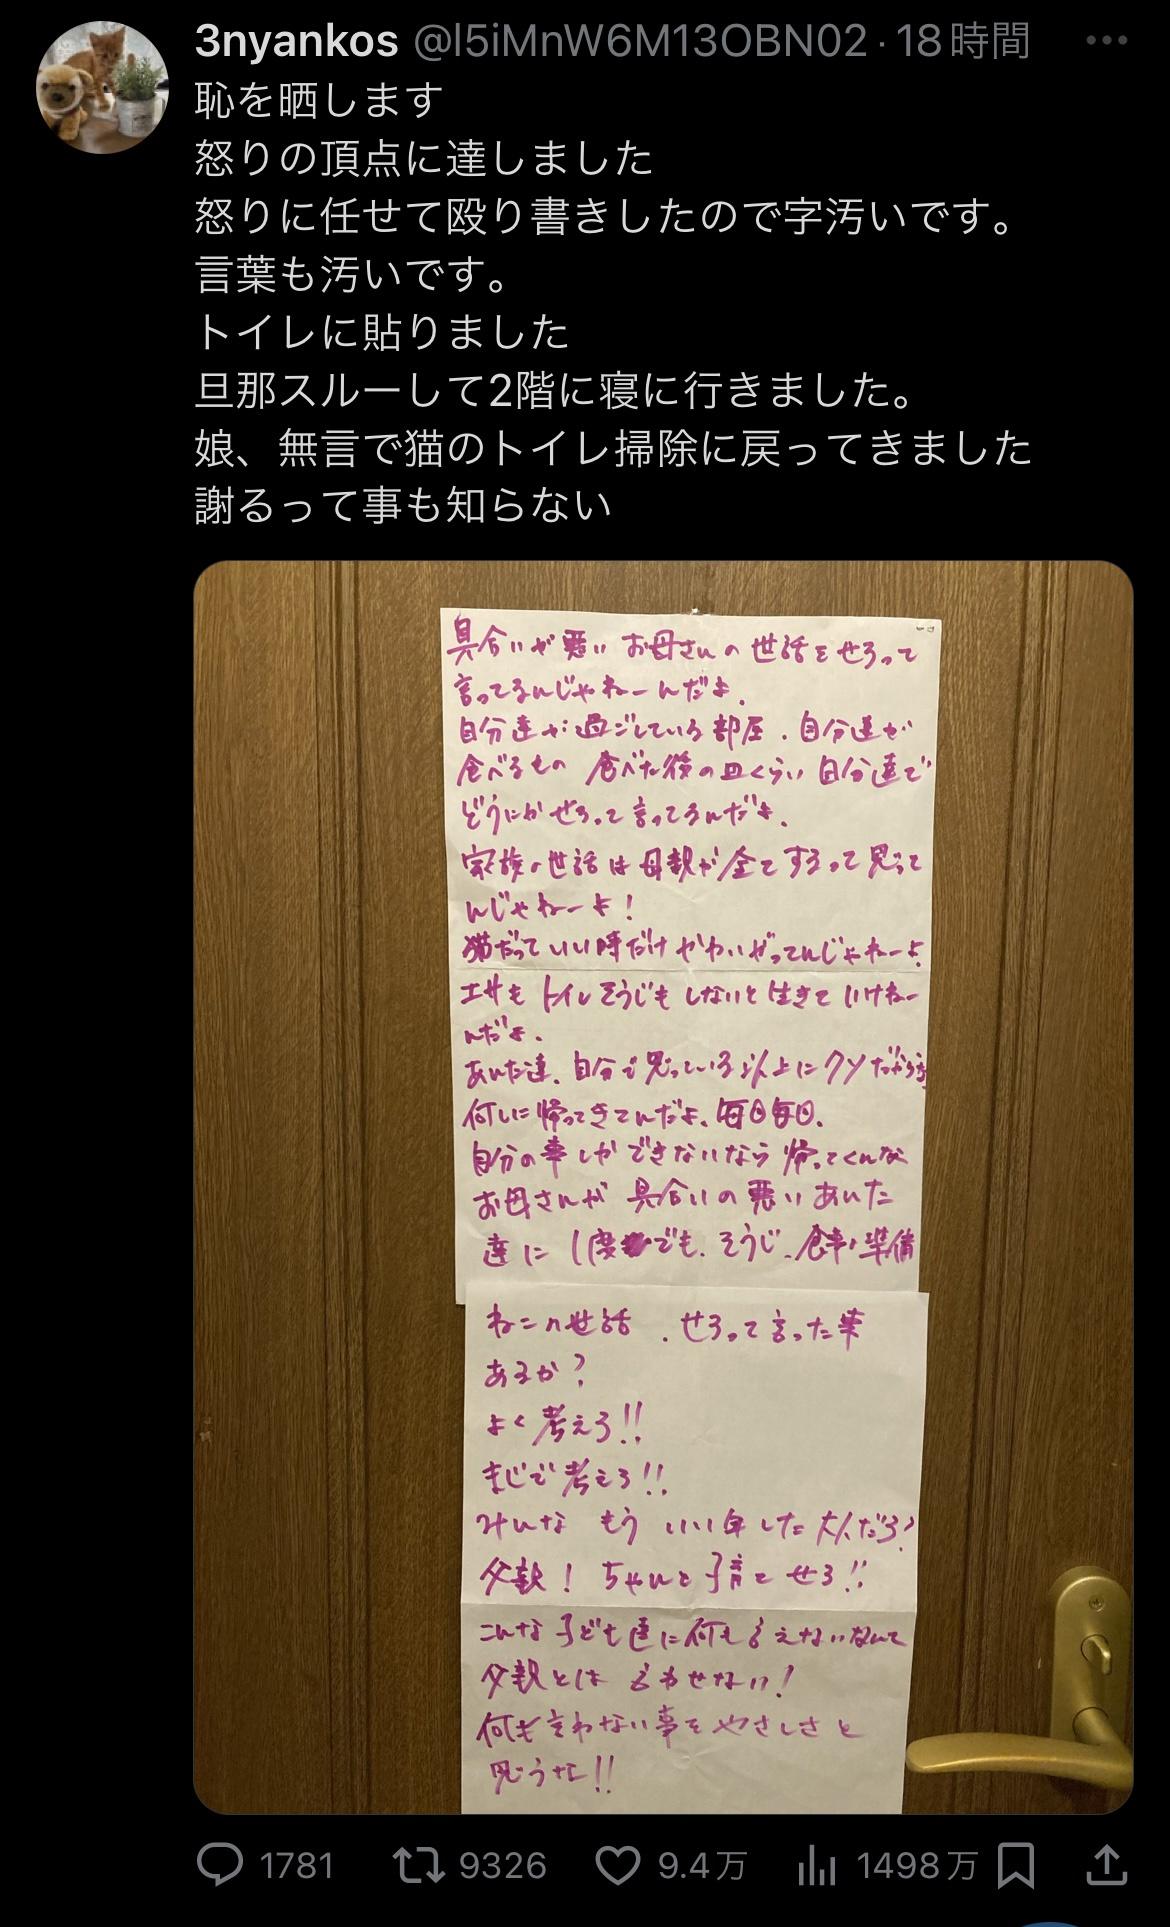 3nyankos @l5iMnW6M13OBN02・18時間
恥を晒します
怒りの頂点に達しました
怒りに任せて殴り書きしたので字汚いです。
言葉も汚いです。
トイレに貼りました
旦那スルーして2階に寝に行きました。
娘、無言で猫のトイレ掃除に戻ってきました
謝るって事も知らない
具合いが悪いお母さんの世話をせろって
言ってるんじゃねーんだよ.
自分達が過ごしている部屋.自分達が
食べるもの 食べた後の皿くらい自分達で
どうにかせろって言ってるんだよ.
家族の世話は母親が全てするって思って
んじゃねーよ!
猫だっていい時だけかわいがってんじゃねーよ.
エサもトイレそうじもしないと生きていけねー
んだよ.
あんた達、自分で思っている以上にクソだからな
何しに帰ってきてんだよ、毎日毎日.
自分の事しかできないなら帰ってくんな
お母さんが具合いの悪いあんた
達に1度でも.そうじ、食事の準備
ねこの世話.せろって言った事
あるか?
よく考えろ!!
まじで考えろ!!
みんな もう いい年した大人だろ?
父親! ちゃんと子育てせろ!!
こんな子ども達に何も言えないなんて
父親とは言わせない!
何も言わない事をやさしさと
思うな!!
1781 9326 9.4万 1498万